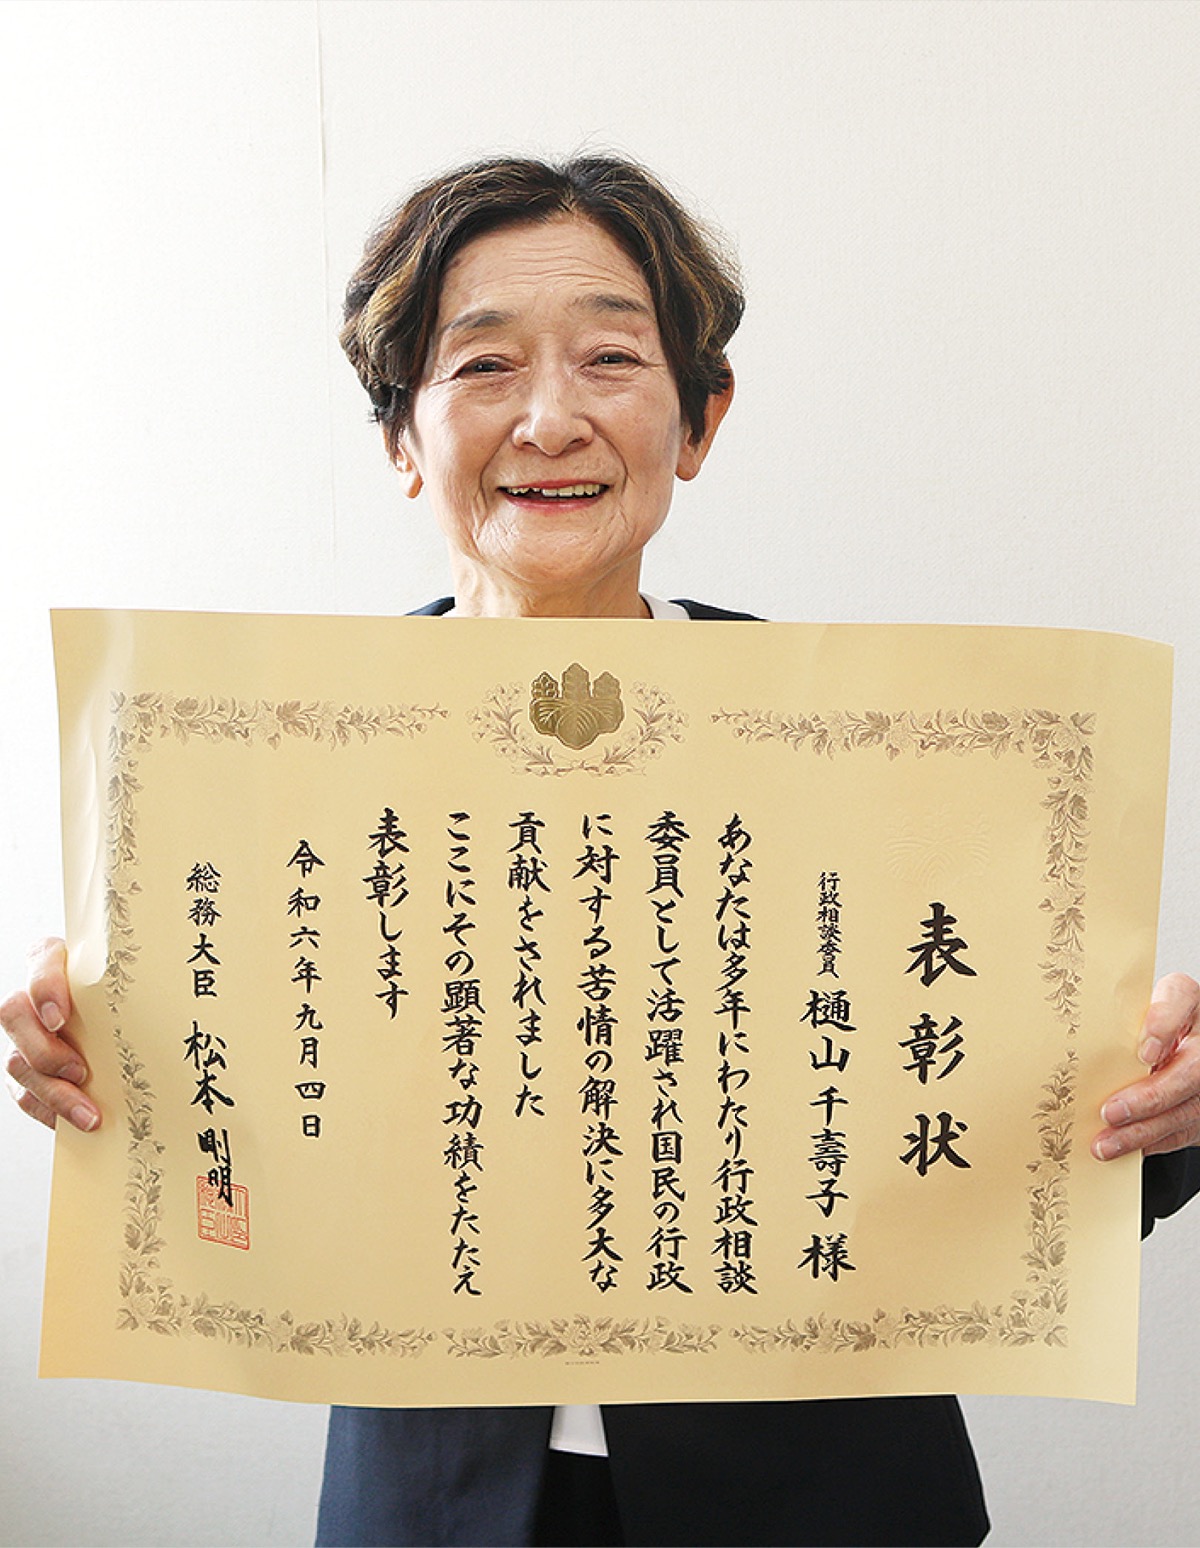 表彰状
行政相談委員 樋山千壽子様
あなたは多年にわたり行政相談
委員として活躍され国民の行政
に対する苦情の解決に多大な
貢献をされました
ここにその顕著な功績をたたえ
表彰します
令和六年九月四日
総務大臣 松本剛明